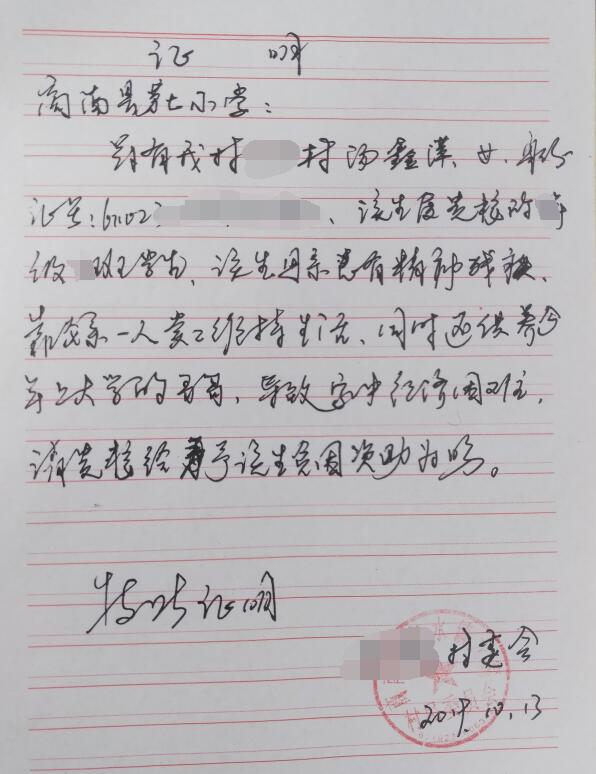 证 明
商南县第七小学：
兹有我村 村汤鑫漾、女、身份
证号：61102 、该生度贵校的 年
级 班学生，该生母亲患有精神残疾、
靠父亲一人党工维持生活、同时还供养今
年上大学的哥哥，导致家中经济困难，
请贵校给予该生贫困资助为盼。
特此证明
村委会
2019.10.13